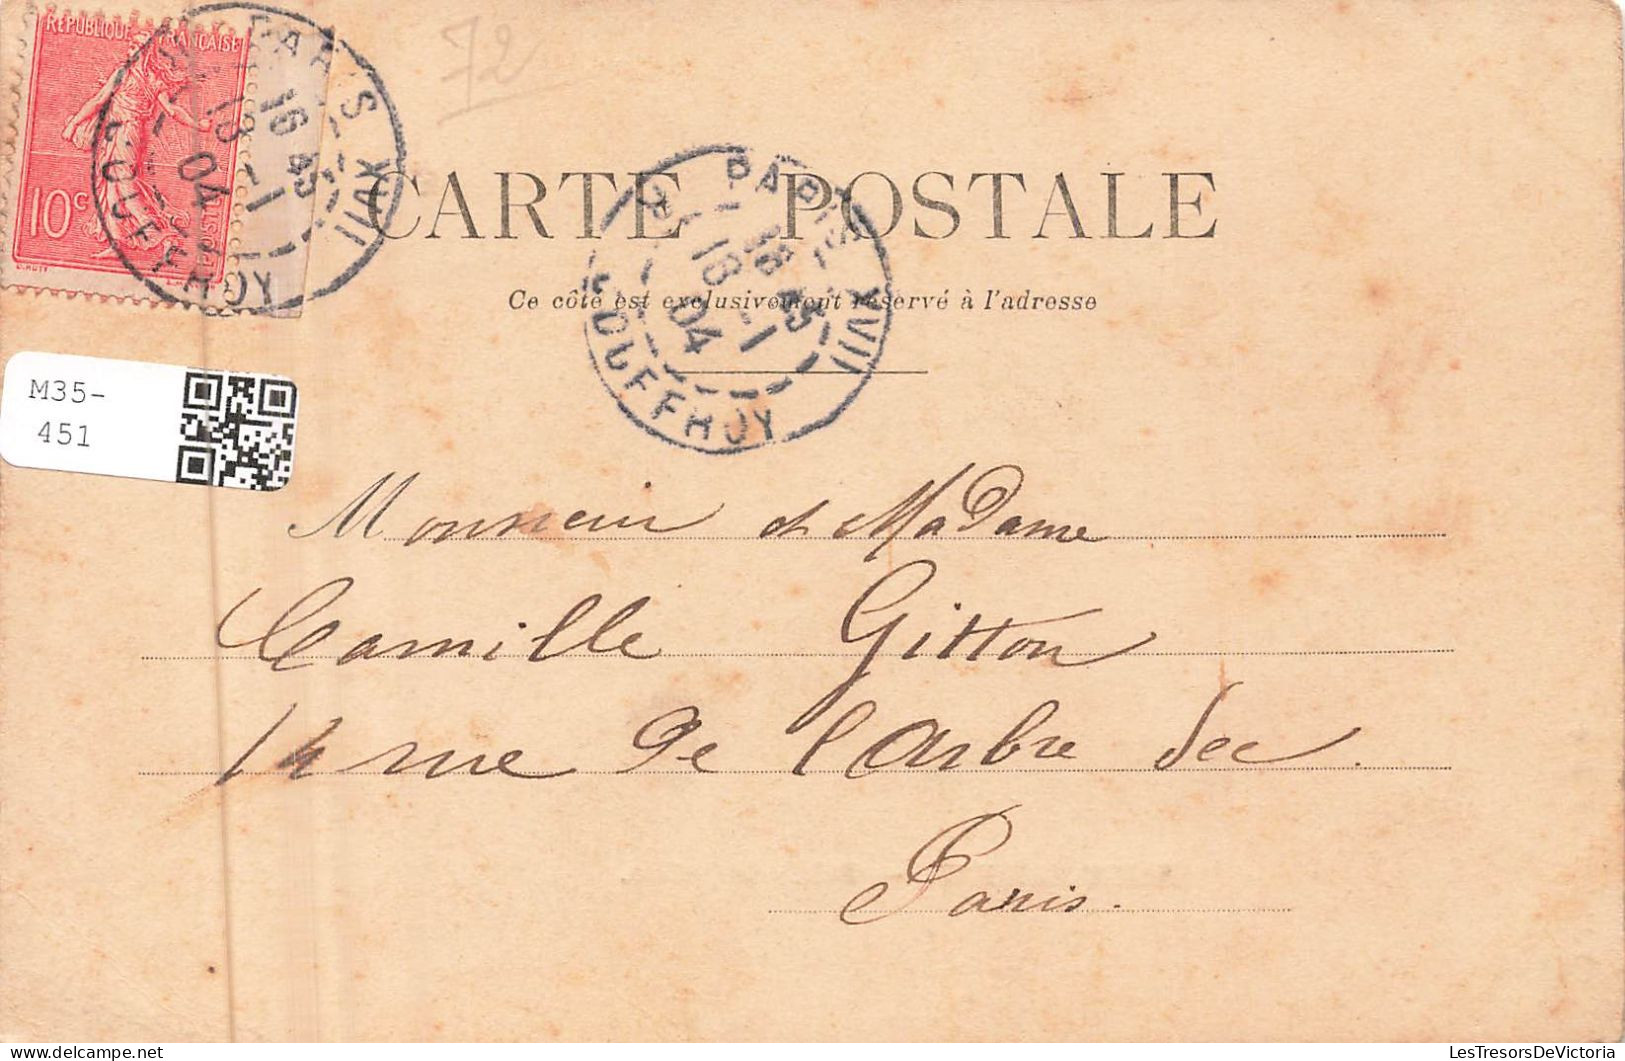 RÉPUBLIQUE FRANÇAISE
10c
POSTES
72
PARIS XVII
16 45
18 -1
04
R. JOUFFROY
CARTE POSTALE
PARIS XVII
16 45
18 -1
04
R. JOUFFROY
Ce côté est exclusivement réservé à l'adresse
M35-
451
Monsieur et Madame
Camille Gitton
14 rue de l'Arbre Sec.
Paris.
LesTresorsDeVictoria